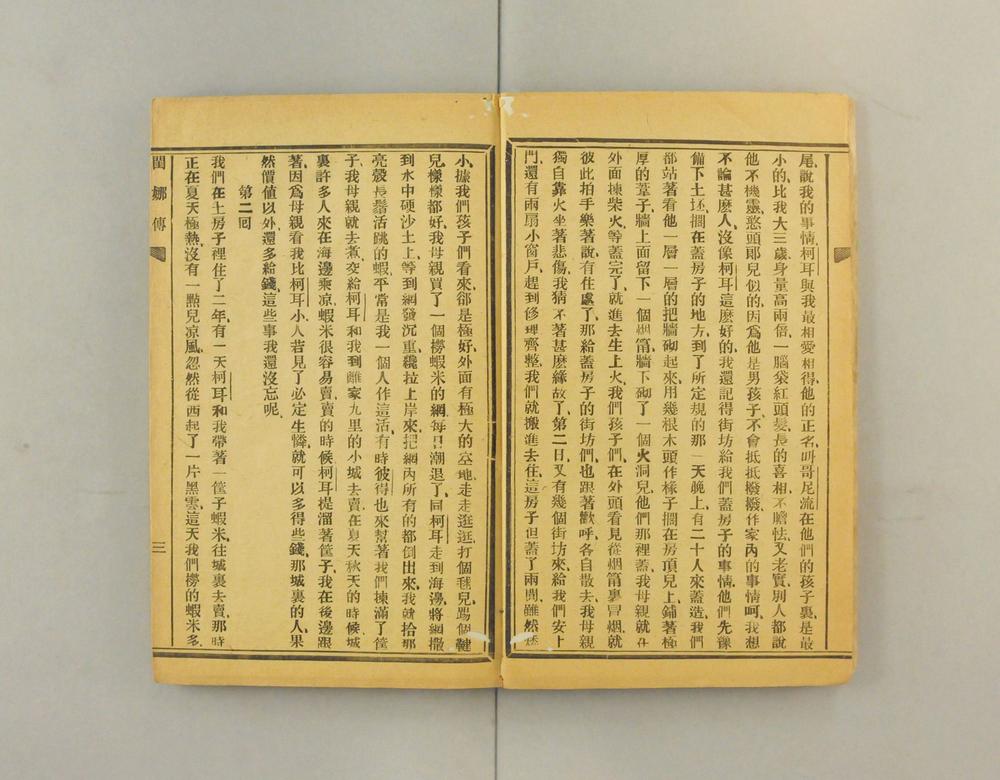 尾說我的事情、柯耳與我最相愛相得、他的正名叫哥尼流、在他們的孩子裏是最
小的、比我大三歲、身量高兩倍、一腦袋紅頭髮、長的喜相、不膽怯、又老實、別人都說
他不機靈、憨頭郎兒似的、因爲他是男孩子、不會抵抵撥撥、作家內的事情、呵、我想
不論甚麽人、沒像柯耳這麽好的、我還記得街坊給我們蓋房子的事情、他們先豫
備下土坯、擱在蓋房子的地方、到了所定規的那一天晚上、有二十人來蓋造、我們
都站著看他一層一層的把牆砌起來、用幾根木頭作椽子、擱在房頂兒上、鋪著極
厚的葦子、牆上面留下一個烟筩、牆下砌了一個火洞兒、他們那裡蓋、我母親就在
外面揀柴火、等蓋完了、就進去生上火、我們孩子們在外頭看見從烟筩裏冒烟、就
彼此拍手樂著說、有住處了、那給蓋房子的街坊們也跟著歡呼、各自散去、我母親
獨自靠火坐著悲傷、我猜不著甚麽緣故了、第二日又有幾個街坊來給我們安上
門、還有兩扇小窗戶、趕到修理齊整、我們就搬進去住、這房子但蓋了兩間、雖然
小、據我們孩子們看來、卻是極好、外面有極大的空地、走走逛逛、打個毬兒、踢個鞬
兒、樣樣都好、我母親買了一個撈蝦米的網、每日潮退了、同柯耳走到海邊、將網撒
到水中硬沙土上、等到網發沉重、纔拉上岸來、把網內所有的都倒出來、我就拾那
亮殼長鬚活跳的蝦、平常是我一個人作這活、有時彼得也來幫著我們揀滿了筐
子、我母親就去煮、交給柯耳和我到離家九里的小城去賣、在夏天秋天的時候、城
裏許多人來在海邊乘凉、蝦米很容易賣、賣的時候、柯耳提溜著筐子、我在後邊跟
著、因爲母親看我比柯耳小、人若見了必定生憐、就可以多得些錢、那城裏的人果
然價值以外、還多給錢、這些事我還沒忘呢、
第二回
我們在土房子裡住了二年、有一天柯耳和我帶著一筐子蝦米、往城裏去賣、那時
正在夏天極熱、沒有一點兒凉風、忽然從西起了一片黑雲、這天我們撈的蝦米多、
閨娜傳 三